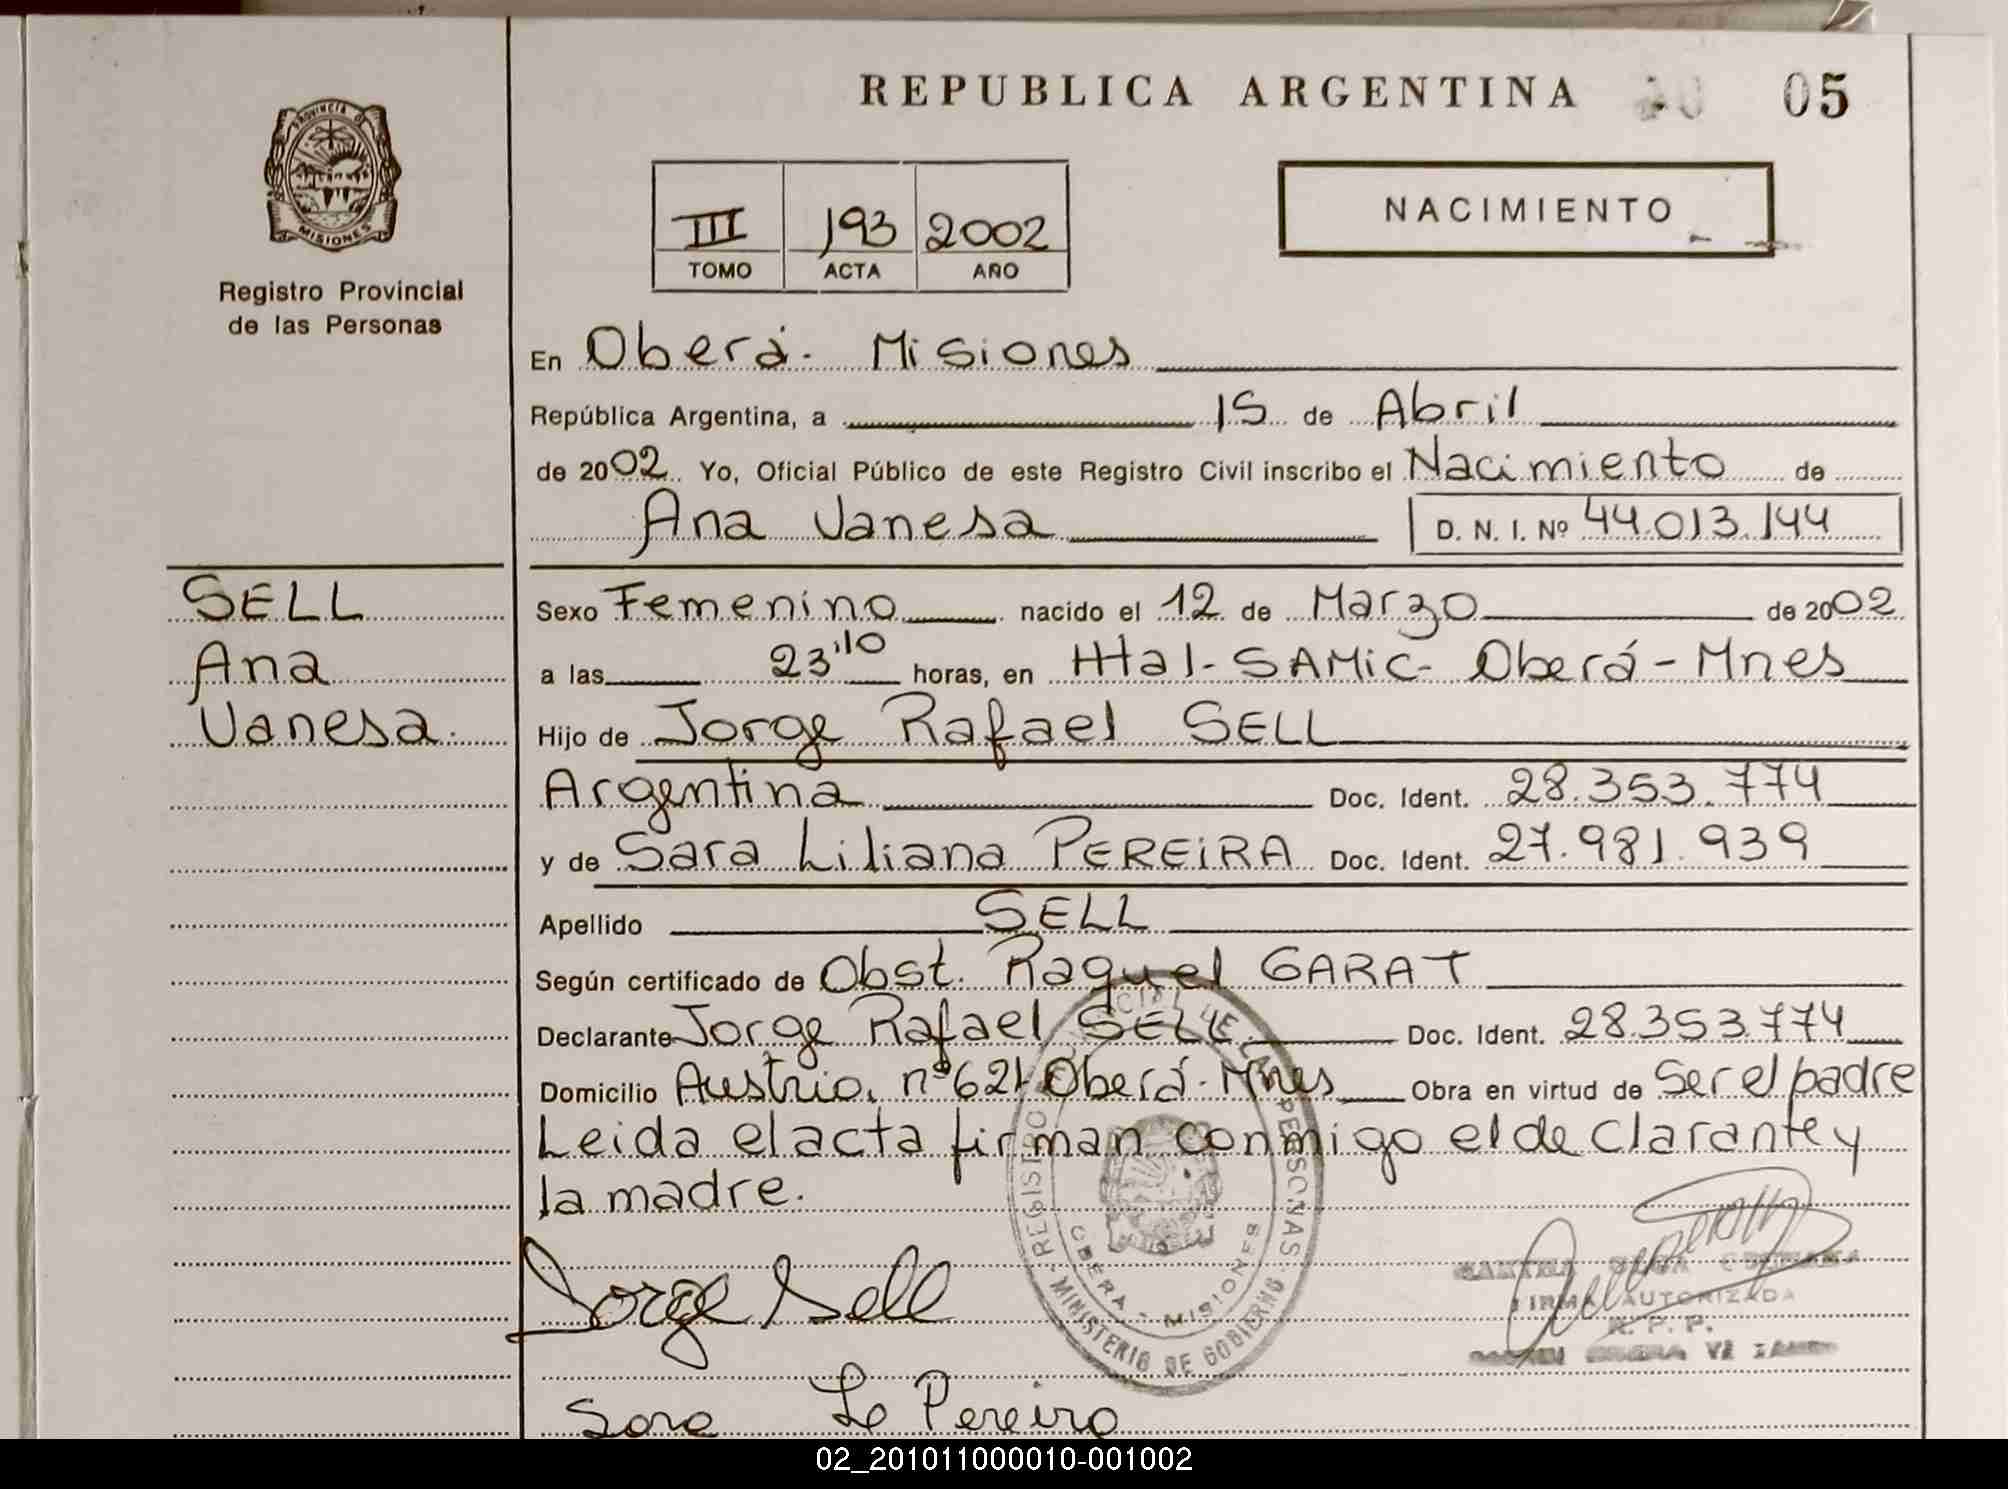 REPUBLICA ARGENTINA 05
PROVINCIA D
MISIONES
Registro Provincial
de las Personas
III 193 2002
TOMO ACTA AÑO
NACIMIENTO
En Oberá. Misiones
República Argentina, a 15 de Abril
de 2002 Yo, Oficial Público de este Registro Civil inscribo el Nacimiento de
Ana Vanesa D. N. I. Nº 44.013.144
SELL
Ana
Vanesa.
Sexo Femenino nacido el 12 de Marzo de 2002
a las 23'10 horas, en Htal-SAMiC- Oberá-Mnes
Hijo de Jorge Rafael SELL
Argentina Doc. Ident. 28.353.774
y de Sara Liliana PEREiRA Doc. Ident. 27.981.939
Apellido SELL
Según certificado de Obst. Raquel GARAT
Declarante Jorge Rafael SELL Doc. Ident. 28.353.774
Domicilio Austria. nº621 Oberá-Mnes Obra en virtud de Ser el padre
Leida el acta firman conmigo el declarante y
la madre.
REGISTRO PROVINCIAL DE LAS PERSONAS
OBERA - MISIONES
MINISTERIO DE GOBIERNO
Jorge Sell
FIRMA AUTORIZADA
R. P. P.
Sara L Pereira
02_201011000010-001002